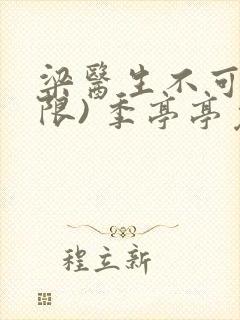 梁醫生不可
限) 季亭亭
程立新